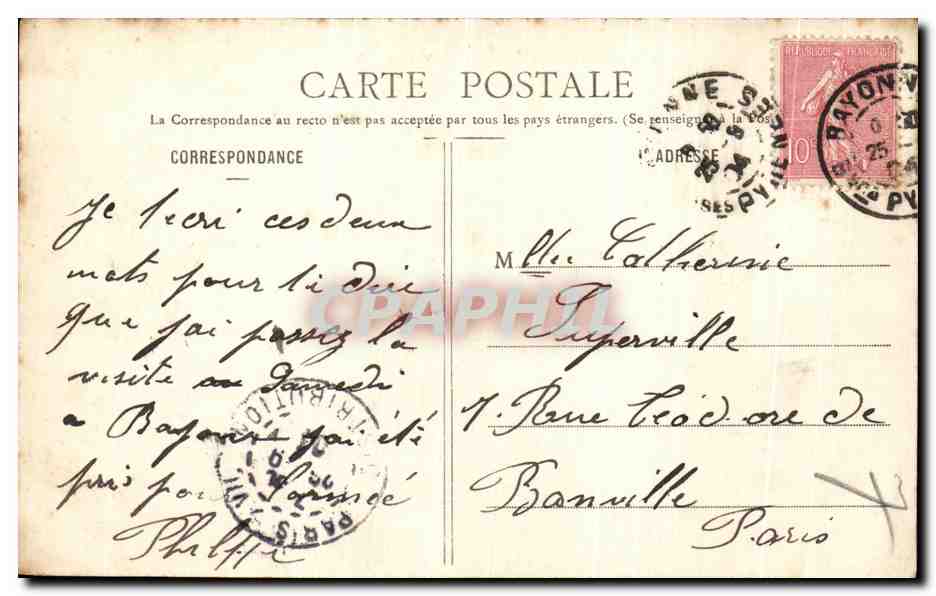 CARTE POSTALE
La Correspondance au recto n'est pas acceptée par tous les pays étrangers. (Se renseigner à la Pos
CORRESPONDANCE
ADRESSE
REPUBLIQUE FRANÇAISE
10
BAYONNE
25
Je t'ecri ces deux
mots pour ti dire
que j'ai passez la
visite au Samedi
a Bayonne j'ai été
pris pour l'armée
Philippe
Mlle Catherine
Superville
7. Rue Téodore de
Banville
Paris
PARIS XVII
DISTRIBUTION
CPAPHIL